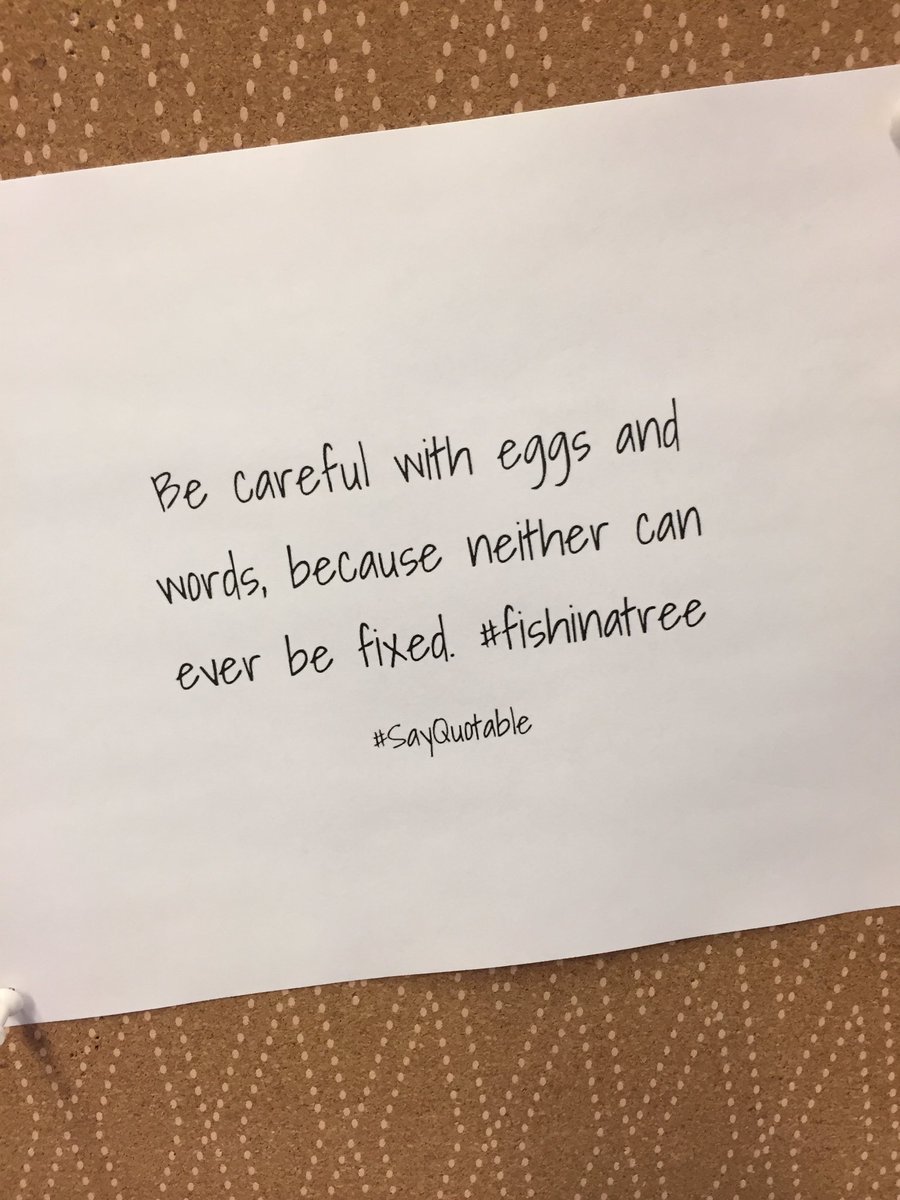 Be careful with eggs and
words, because neither can
ever be fixed. #fishinatree
#SayQuotable